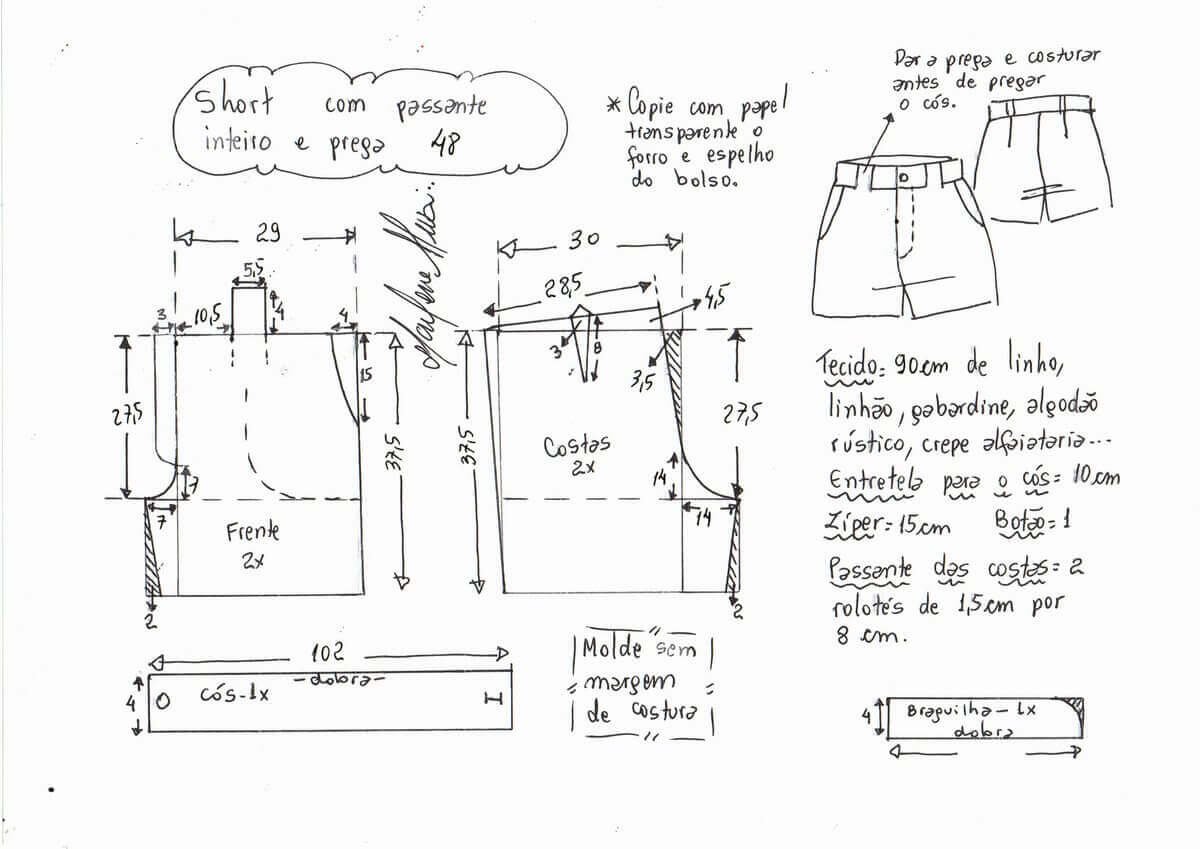 Short com passante
inteiro e prega 48
* Copie com papel
transparente o
forro e espelho
do bolso.
Dar a prega e costurar
antes de pregar
o cós.
29
5,5
3
10,5
4
4
15
27,5
37,5
7
7
Frente
2x
2
30
28,5
4,5
3
8
3,5
37,5
27,5
Costas
2x
14
14
2
Tecido= 90cm de linho,
linhão, gabardine, algodão
rústico, crepe alfaiataria...
Entretela para o cós= 10cm
Zíper= 15cm Botão= 1
Passante das costas= 2
rolotés de 1,5cm por
8 cm.
102
-dobra-
4
cós-1x
Molde sem
margem
de costura
4
Braguilha-1x
dobra